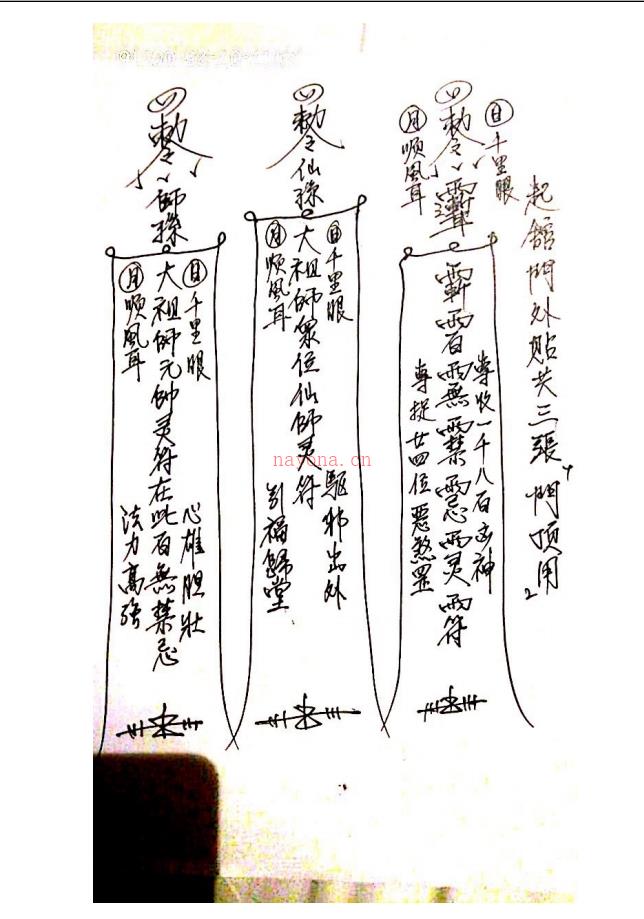 起館門外貼共三張 門頂用
日千里眼
勅令
月順風耳
專收一千八百凶神
專捉廿四位惡煞罡
勅令仙孫
日千里眼
大祖師眾位仙師灵符
月順風耳
驅邪出外
引福歸堂
勅令師孫
日千里眼
大祖師元帥灵符在此百無禁忌
月順風耳
心雄胆壯
法力高強
nayona.cn